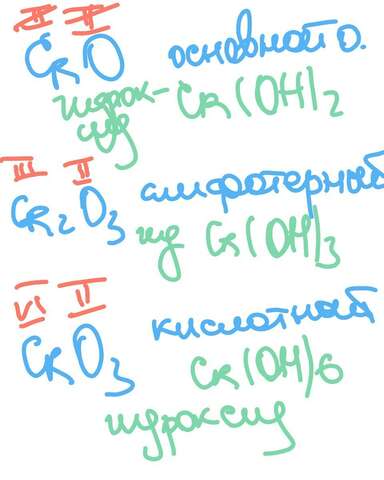 II II
CrO основной о.
гидрок-
сид Cr(OH)2
III II
Cr2O3 амфотерный
гид Cr(OH)3
VI II
CrO3 кислотный
Cr(OH)6
гидроксид